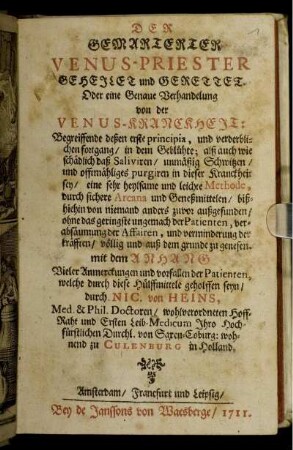 DER
GEMARTERTER
VENUS-PRIESTER
GEHEILET und GERETTET.
Oder eine Genaue Verhandelung
von der
VENUS-KRANCKHEIT:
Begreiffende deßen erste principia, und verderbli-
chen fortgang/ in dem Geblühte; alß auch wie
schädlich daß Saliviren/ unmäßig Schwitzen/
und offtmähliges purgiren in dieser Kranckheit
sey/ eine sehr heylsame und leichte Methode,
durch sichere Arcana und Geneßmittelen/ biß-
hiehin von niemand anders zuvor außgefunden/
ohne das geringste ungemach der Patienten, ver-
absäumung der Affairen, und verminderung der
kräfften/ völlig und auß dem grunde zu genesen.
mit dem ANHANG
Vieler Anmerckungen und vorfällen der Patienten,
welche durch diese Hülffmittele geholffen seyn/
durch NIC. von HEINS,
Med. & Phil. Doctoren/ wohlverordneten Hoff-
Raht und Ersten Leib-Medicum Ihro Hoch-
fürstlichen Durchl. von Saxen-Coburg: woh-
nend zu CULENBURG in Holland.
Amsterdam/ Franckfurt und Leipzig/
Bey de Janssons von Waesberge/ 1711.